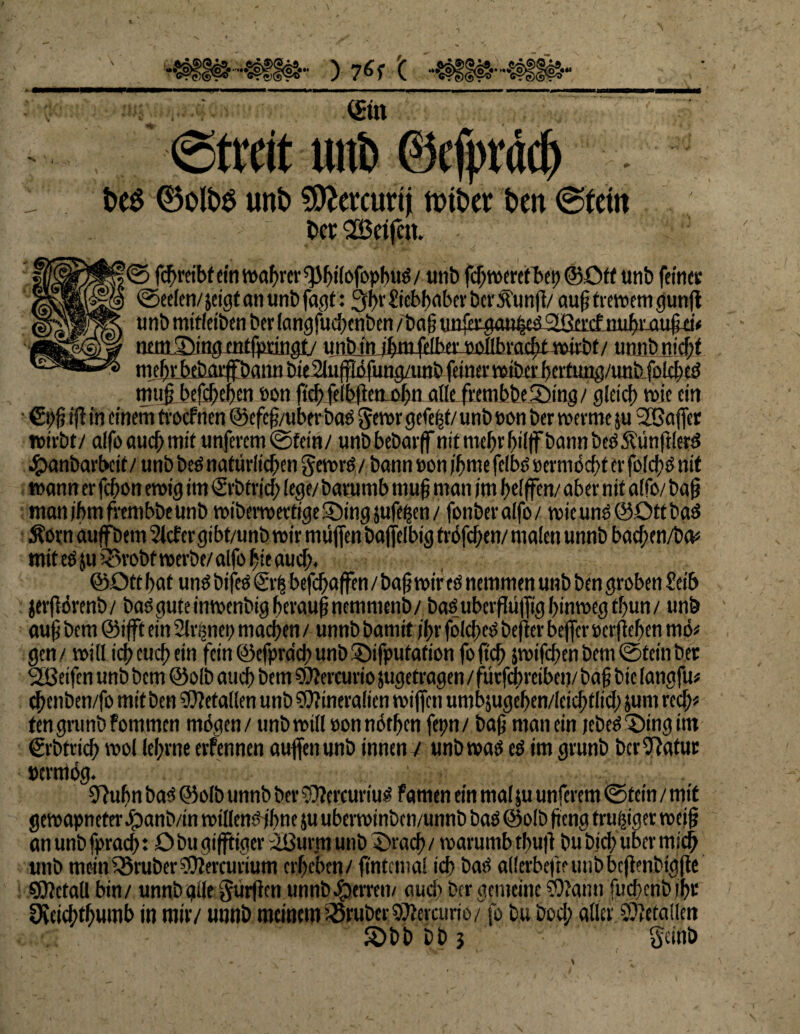 ) 765 (
Ein
Streit und Gespräch
des Golds und Mercurij wider den Stein
der Weisen.
ES schreibt ein wahrer Philosophus / und schweret bey GOtt und seiner
Seelen / zeigt an und sagt: Ihr Liebhaber der Kunst / auß trewem gunst
und mitleiben der langsuchenden / daß unser gantzes Werck nuhr auß ei⸗
nem Ding entspringt / und in ihm selber vollbracht wirdt / unnd nicht
mehr bedarff dann die Aufflösung / und seiner wider hertung / und solches
muß beschehen von sich selbsten ohn alle frembde Ding / gleich wie ein
Eyß ist in einem trocknen Gefeß / uber das Fewr gesetzt / und von der werme zu Wasser
wirdt / also auch mit unserem Stein / und bedarff nit mehr hilff dann des Künstlers
Handarbeit / und des natürlichen Fewrs / dann von ihme selbs vermöcht er solchs nit
wann er schon ewig im Erdtrich lege / darumb muß man jm helffen / aber nit also / daß
man ihm frembde und widerwertige Ding zusetzen / sonder also / wie uns GOtt das
Korn auff dem Acker gibt / und wir müssen dasselbig tröschen / malen unnd bachen / da⸗
mit es zu Brodt werde / also hie auch.
GOtt hat uns dises Ertz beschaffen / daß wir es nemmen und den groben Leib
zerstörend / das gute inwendig herauß nemmend / das uberflüssig hinweg thun / und
auß dem Gifft ein Artzney machen / unnd damit ihr solches dester besser verstehen mö⸗
gen / will ich euch ein fein Gespräch und Disputation so sich zwischen dem Stein der
Weisen und dem Gold auch dem Mercurio zugetragen / fürschreiben / daß die langsu⸗
chenden / so mit den Metallen und Mineralien wissen umbzugehen / leichtlich zum rech⸗
ten grund kommen mögen / und will von nöthen seyn / daß man ein jedes Ding im
Erdtrich wol lehrne erkennen aussen und innen / und was es im grund der Natur
vermög.
Nuhn das Gold unnd der Mercurius kamen ein mal zu unserem Stein / mit
gewapneter Hand / in willens ihne zu uberwinden / unnd das Gold fieng trutziger weiß
an und sprach: O du gifftiger Wurm und Drach / warumb thust du dich uber mich
und mein Bruder Mercurium erheben / sintemal ich das allerbeste und bestendigste
Metall bin / unnd alle Fürsten unnd Herren / auch der gemeine Mann suchend ihr
Reichthumb in mir / unnd meinem Bruder Mercurio / so du doch aller Metallen
Ddd dd 3 Feind